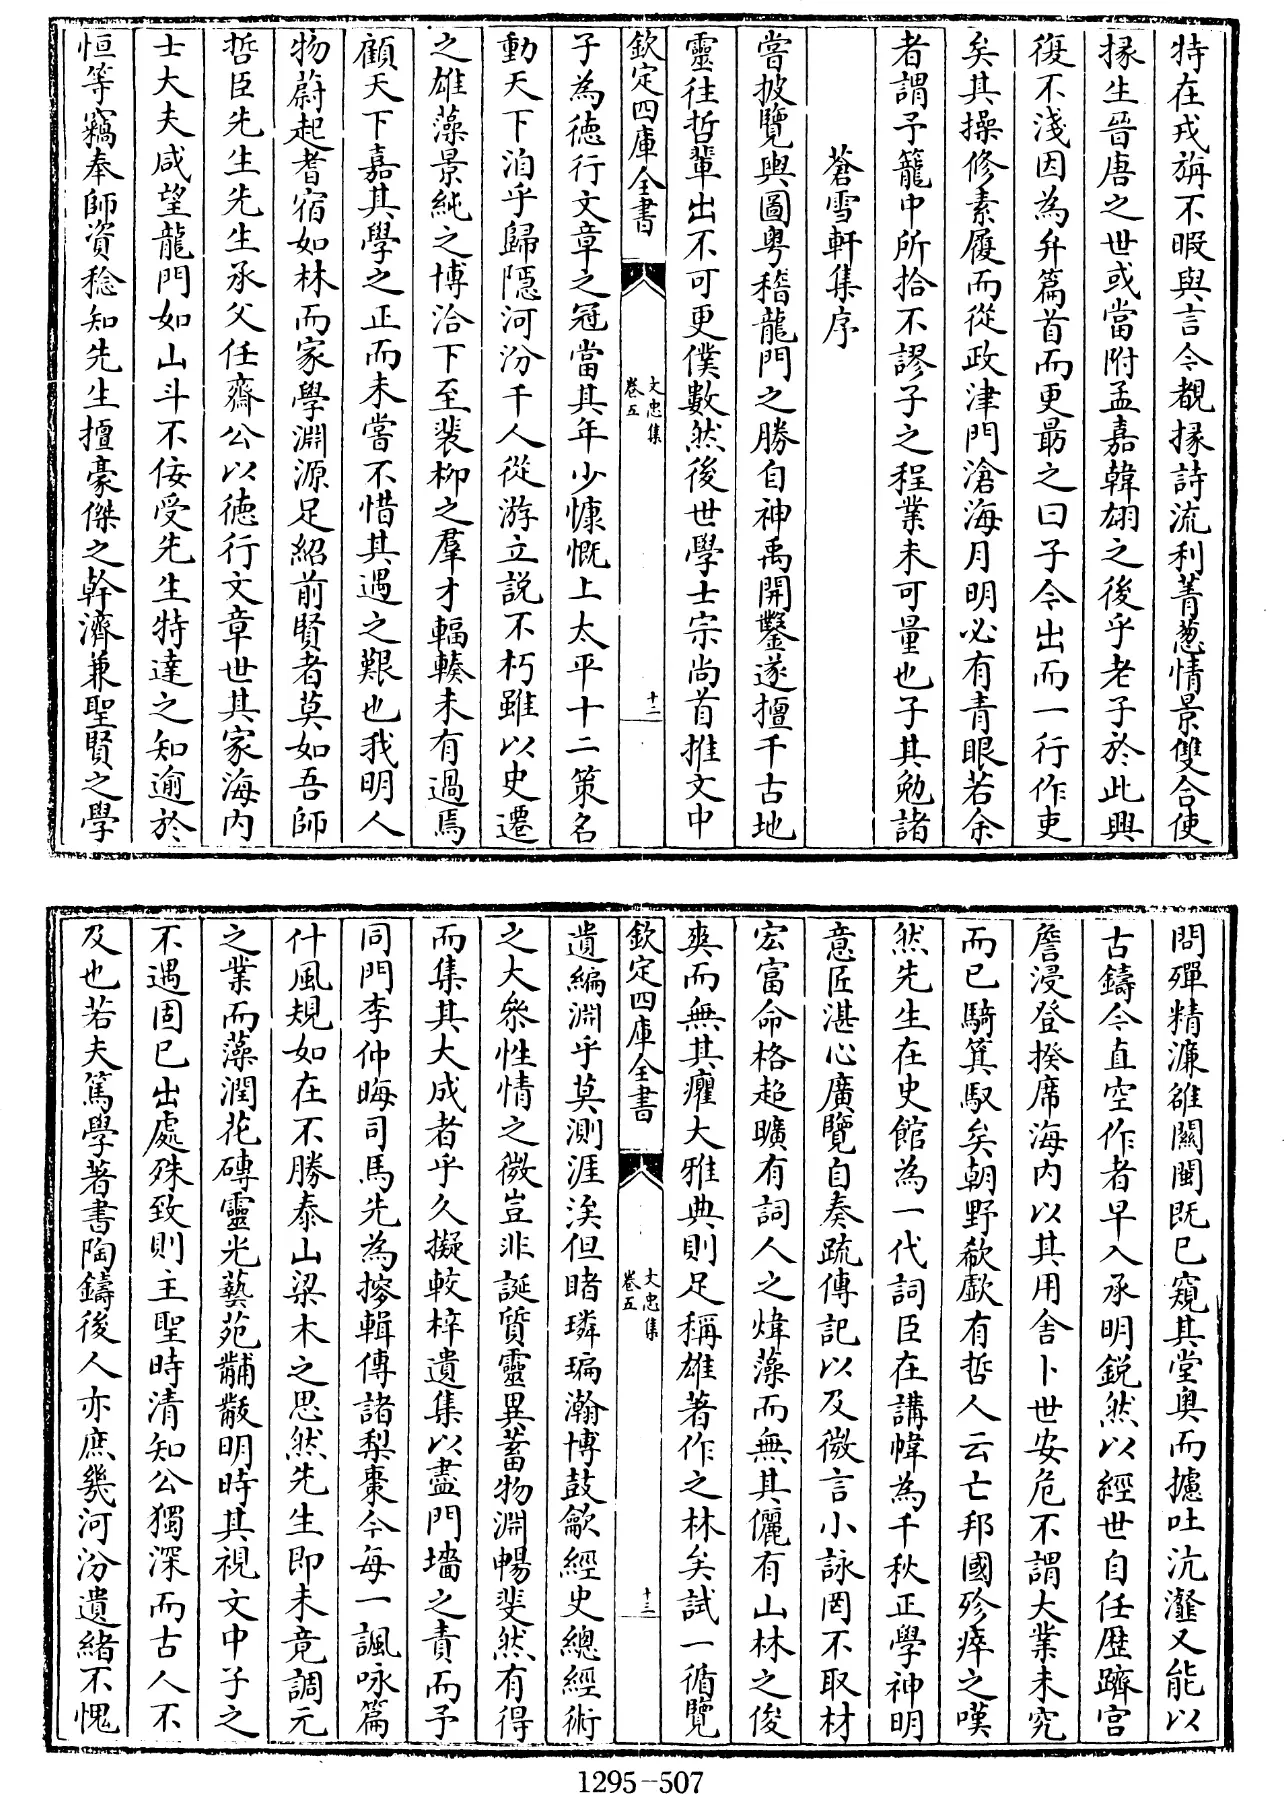 特在戎旃不暇與言令覩掾詩流利菁葱情景雙合使
掾生晉唐之世或當附孟嘉韓翃之後乎老子於此興
復不淺因為弁篇首而更勗之曰子今出而一行作吏
矣其操修素履而從政津門滄海月明必有青眼若余
者謂予籠中所拾不謬子之程業未可量也子其勉諸
蒼雪軒集序
嘗披覽輿圖粵稽龍門之勝自神禹開鑿遂擅千古地
靈往哲輩出不可更僕數然後世學士宗尚首推文中
欽定四庫全書
文忠集
卷五
十二
子為德行文章之冠當其年少慷慨上太平十二策名
動天下洎乎歸隱河汾千人從游立說不朽雖以史遷
之雄藻景純之博洽下至裴柳之羣才輻輳未有過焉
顧天下嘉其學之正而未嘗不惜其遇之艱也我明人
物蔚起耆宿如林而家學淵源足紹前賢者莫如吾師
哲臣先生先生承父任齋公以德行文章世其家海內
士大夫咸望龍門如山斗不佞受先生特達之知逾於
恒等竊奉師資稔知先生擅豪傑之幹濟兼聖賢之學
問殫精濂雒關閩既已窺其堂奧而攄吐沆瀣又能以
古鑄今直空作者早入承明銳然以經世自任歷躋宮
詹浸登揆席海內以其用舍卜世安危不謂大業未究
而已騎箕馭矣朝野欷歔有哲人云亡邦國殄瘁之嘆
然先生在史館為一代詞臣在講幃為千秋正學神明
意匠湛心廣覽自奏疏傳記以及微言小詠罔不取材
宏富命格超曠有詞人之煒藻而無其儷有山林之俊
爽而無其癯大雅典則足稱雄著作之林矣試一循覽
欽定四庫全書
文忠集
卷五
十三
遺編淵乎莫測涯涘但睹璘㻞瀚博鼓歈經史總經術
之大叅性情之微豈非誕質靈異蓄物淵暢斐然有得
而集其大成者乎久擬較梓遺集以盡門墻之責而予
同門李仲晦司馬先為摉輯傳諸梨棗今每一諷咏篇
什風規如在不勝泰山梁木之思然先生即未竟調元
之業而藻潤花磚靈光藝苑黼黻明時其視文中子之
不遇固已出處殊致則主聖時清知公獨深而古人不
及也若夫篤學著書陶鑄後人亦庶幾河汾遺緒不愧
1295-507